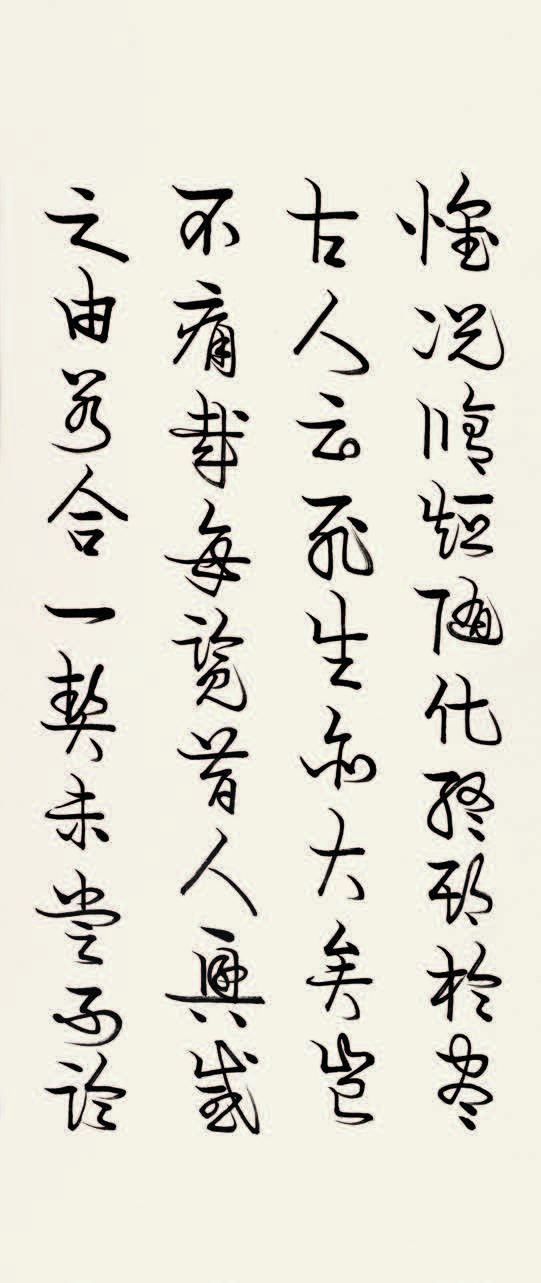 懷况脩短隨化終期於盡
古人云死生亦大矣豈
不痛哉每覽昔人興感
之由若合一契未嘗不臨